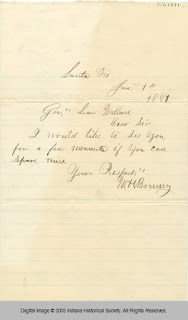 Santa Fe
Jan'y 1st
1881
Gov'r Lew Wallace
Dear Sir
I would like to see you
for a few moments if you can
spare time
Yours Respect'
W H Bonney
Digital Image © 2003 Indiana Historical Society. All Rights Reserved.